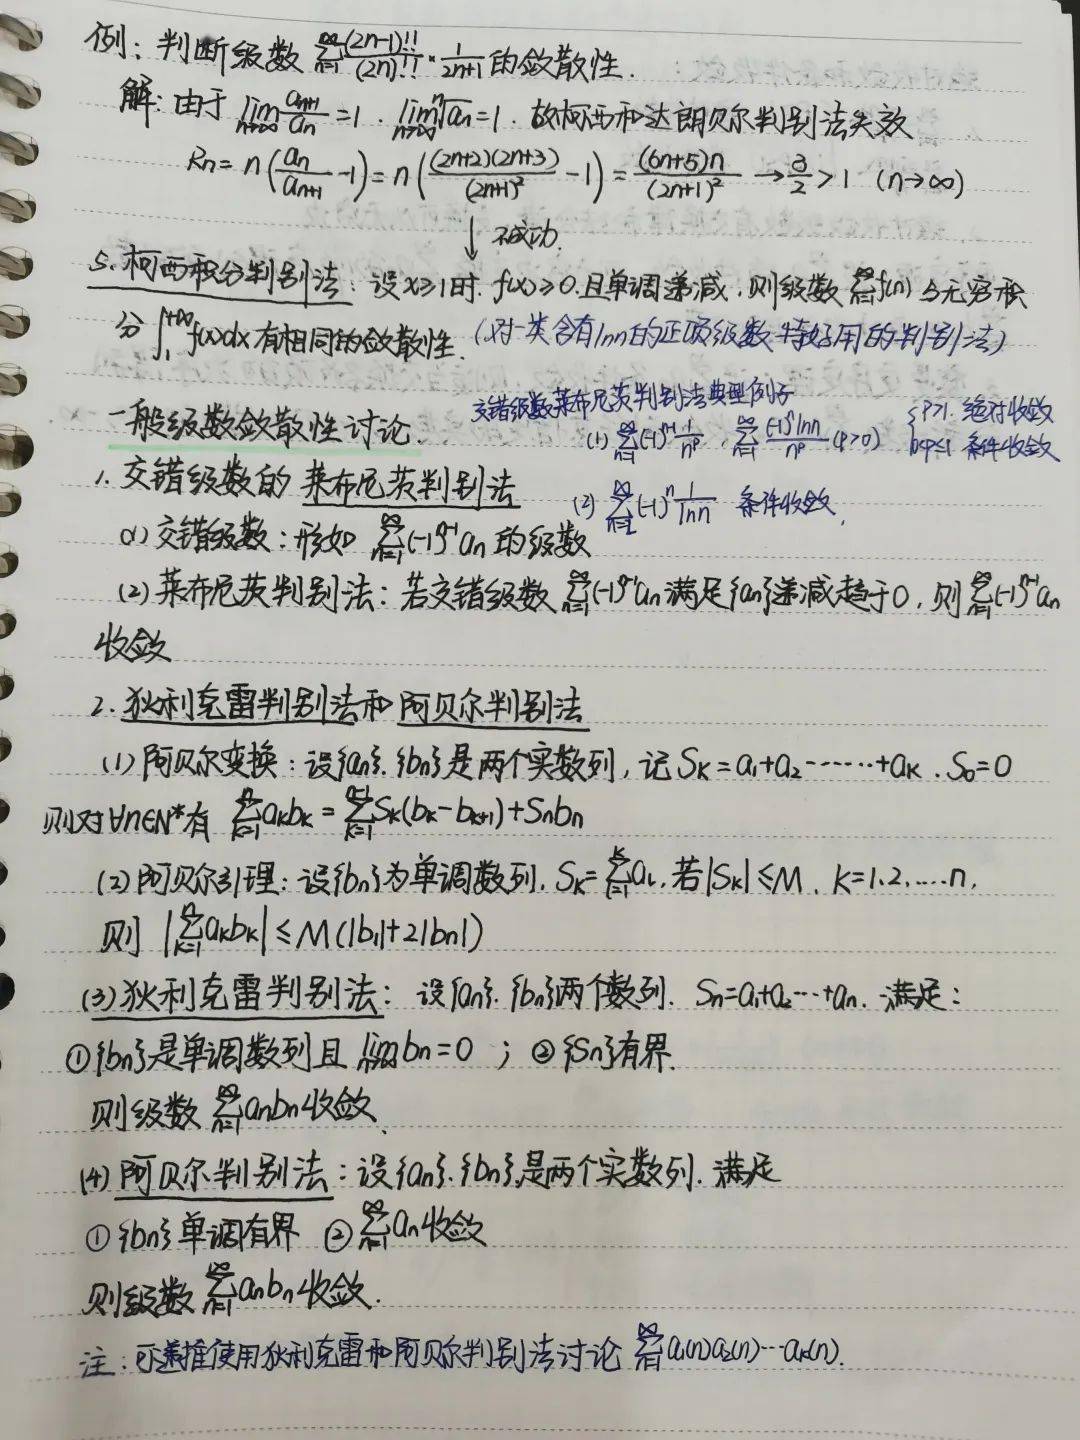 例: 判断级数 ∑_{n=1}^{∞} (2n-1)!!/(2n)!! · 1/(2n+1) 的敛散性.
解: 由于 lim_{n→∞} a_{n+1}/a_n = 1 . lim_{n→∞} ⁿ√a_n = 1 . 故柯西和达朗贝尔判别法失效
R_n = n(a_n/a_{n+1} - 1) = n((2n+2)(2n+3)/(2n+1)² - 1) = (6n+5)n/(2n+1)² → 3/2 > 1 (n→∞)
↓
5. 柯西积分判别法: 设x≥1时. f(x)≥0.且单调递减.则级数 ∑_{n=1}^{∞} f(n) 与无穷积
分 ∫_1^{+∞} f(x)dx 有相同的敛散性. (对一类含有lnn的正项级数特好用的判别法)
交错级数莱布尼茨判别法典型例子
一般级数敛散性讨论.
(1) ∑_{n=1}^{∞} (-1)^{n-1} 1/n^p . ∑_{n=1}^{∞} (-1)^n lnn/n^p (p>0) { p>1. 绝对收敛
0<p≤1 条件收敛
1. 交错级数的 莱布尼茨判别法
(2) ∑_{n=2}^{∞} (-1)^n 1/lnn 条件收敛.
(1) 交错级数: 形如 ∑_{n=1}^{∞} (-1)^{n-1} a_n 的级数
(2) 莱布尼茨判别法: 若交错级数 ∑_{n=1}^{∞} (-1)^{n-1} a_n 满足{a_n}递减趋于0, 则 ∑_{n=1}^{∞} (-1)^{n-1} a_n
收敛
2. 狄利克雷判别法和 阿贝尔判别法
(1) 阿贝尔变换: 设{a_n}. {b_n}是两个实数列, 记 S_k = a_1+a_2------+a_k . S_0=0
则对∀n∈N*有 ∑_{k=1}^{n} a_k b_k = ∑_{k=1}^{n-1} S_k(b_k - b_{k+1}) + S_n b_n
(2) 阿贝尔引理: 设{b_n}为单调数列. S_k = ∑_{i=1}^{k} a_i, 若|S_k|≤M. k=1.2.....n.
则 |∑_{k=1}^{n} a_k b_k| ≤ M(|b_1|+2|b_n|)
(3) 狄利克雷判别法: 设{a_n}. {b_n}两个数列. S_n=a_1+a_2---+a_n. 满足:
① {b_n}是单调数列且 lim_{n→∞} b_n = 0 ; ② {S_n}有界.
则级数 ∑_{n=1}^{∞} a_n b_n 收敛.
(4) 阿贝尔判别法: 设{a_n}.{b_n}是两个实数列. 满足
① {b_n}单调有界 ② ∑_{n=1}^{∞} a_n 收敛
则级数 ∑_{n=1}^{∞} a_n b_n 收敛.
注: 可递推使用狄利克雷和阿贝尔判别法讨论 ∑_{n=1}^{∞} a_1(n)a_2(n)---a_k(n).